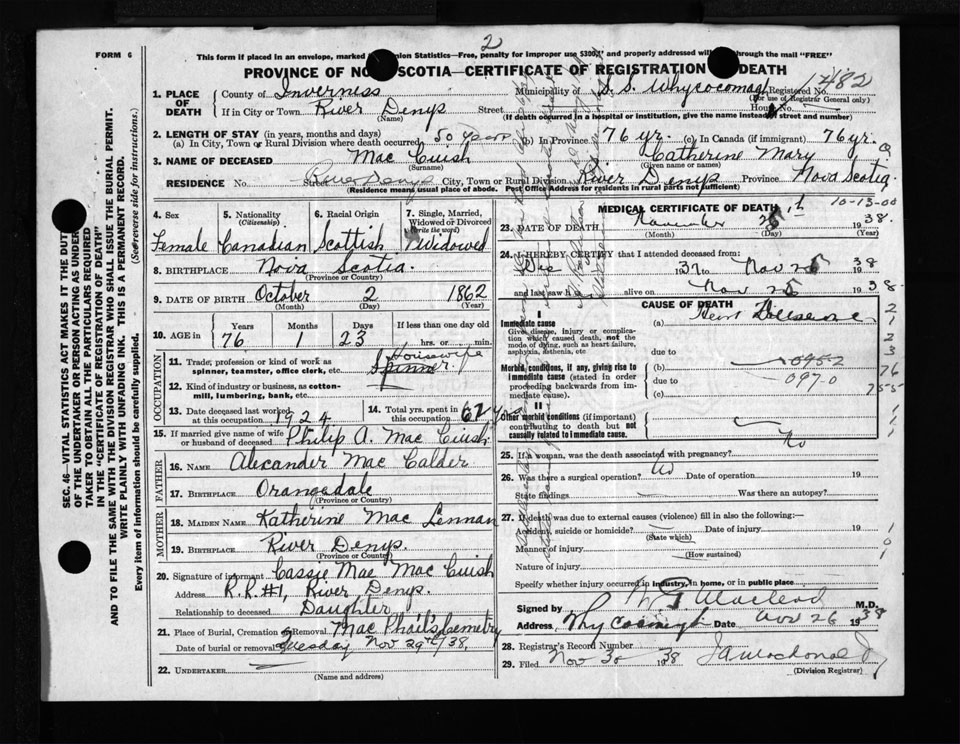 FORM 6
2
This form if placed in an envelope, marked Statistics—Free, penalty for improper use $300, and properly addressed will through the mail "FREE"
PROVINCE OF NO SCOTIA—CERTIFICATE OF REGISTRATION DEATH
1482
1. PLACE OF DEATH
County of Inverness
Municipality of S. S. Whycocomagh
Registered No.
(For use of Registrar General only)
If in City or Town River Denys Street
(Name)
Hours
(If death occurred in a hospital or institution, give the name instead of street and number)
2. LENGTH OF STAY (in years, months and days)
(a) In City, Town or Rural Division where death occurred 50 Years (b) In Province 76 yr. (c) In Canada (if immigrant) 76 yr.
3. NAME OF DECEASED Mac Cuish Catherine Mary
(Surname) (Given name or names)
RESIDENCE No. Street River Denys City, Town or Rural Division River Denys Province Nova Scotia
(Residence means usual place of abode. Post Office Address for residents in rural parts not sufficient)
4. Sex Female
5. Nationality (Citizenship) Canadian
6. Racial Origin Scottish
7. Single, Married, Widowed or Divorced (Write the word) Widowed
8. BIRTHPLACE Nova Scotia.
(Province or Country)
9. DATE OF BIRTH October 2 1862
(Month) (Day) (Year)
10. AGE in Years 76 Months 1 Days 23 If less than one day old hrs. or min.
OCCUPATION
11. Trade, profession or kind of work as spinner, teamster, office clerk, etc. Housewife
12. Kind of industry or business, as cotton-mill, lumbering, bank, etc.
13. Date deceased last worked at this occupation 1924
14. Total yrs. spent in this occupation 62 Yrs
15. If married give name of wife or husband of deceased Philip A. Mac Cuish
FATHER
16. NAME Alexander Mac Calder
17. BIRTHPLACE Orangedale
(Province or Country)
MOTHER
18. MAIDEN NAME Katherine Mac Lennan
19. BIRTHPLACE River Denys.
(Province or Country)
20. Signature of informant Cassie Mae Mac Cuish
Address R.R.#1, River Denys.
Relationship to deceased Daughter
21. Place of Burial, Cremation or Removal Mac Phail's Cemetry
Date of burial or removal Tuesday Nov 29th/38,
22. UNDERTAKER
(Name and address)
MEDICAL CERTIFICATE OF DEATH
10-13-00
23. DATE OF DEATH November 25th 1938.
(Month) (Day) (Year)
24. I HEREBY CERTIFY that I attended deceased from:
Dec 1937 to Nov 25 1938
and last saw h alive on Nov 25 1938.
CAUSE OF DEATH
I
Immediate cause (a) Heart
Give disease, injury or complication which caused death, not the mode of dying, such as heart failure, asphyxia, asthenia, etc
due to
Morbid conditions, if any, giving rise to immediate cause (stated in order proceeding backwards from immediate cause).
(b) 095-2
due to 097-0
(c)
II
Other morbid conditions (if important) contributing to death but not causally related to immediate cause.
25. If a woman, was the death associated with pregnancy? No
26. Was there a surgical operation? No Date of operation 19
State findings Was there an autopsy?
27. If death was due to external causes (violence) fill in also the following:—
Accident, suicide or homicide? Date of injury 19
(State which)
Manner of injury
(How sustained)
Nature of injury
Specify whether injury occurred in industry, in home, or in public place
Signed by Macleod M.D.
Address Date Nov 26 1938
28. Registrar's Record Number
29. Filed Nov 30 1938 J A MacDonald
(Division Registrar)
SEC. 46—VITAL STATISTICS ACT MAKES IT THE DUTY
OF THE UNDERTAKER OR PERSON ACTING AS UNDERTAKER TO OBTAIN ALL THE PARTICULARS REQUIRED
IN THE "CERTIFICATE OF REGISTRATION OF DEATH"
AND TO FILE THE SAME WITH THE DIVISION REGISTRAR WHO SHALL ISSUE THE BURIAL PERMIT.
WRITE PLAINLY WITH UNFADING INK. THIS IS A PERMANENT RECORD.
Every item of information should be carefully supplied. (See reverse side for instructions.)